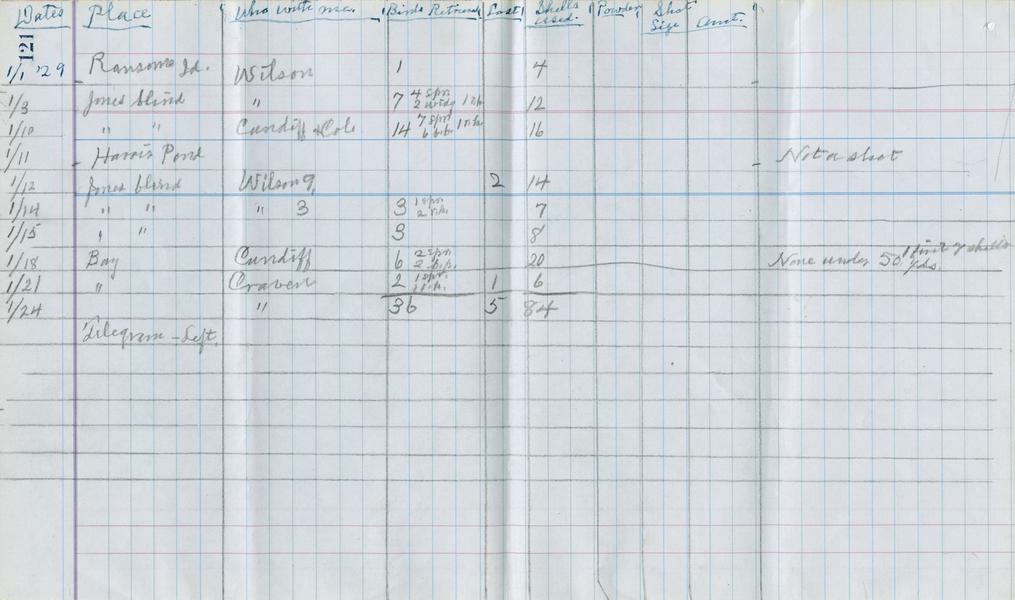 Dates Place Who with me. Birds Retrieved Lost Shells Used. Powder Shot Size Amt.
121
1/1 '29 Ransoms Id. Wilson 1 4
1/3 Jones blind " 7 4 spr. 12
1/10 " " Cundiff & Cole 14 7 spr. 16
1/11 Harris Pond Not a shot
1/12 Jones blind Wilson 2 14
1/14 " " " 3 3 1 spr. 7
1/15 " " 3 8
1/18 Bay Cundiff 6 2 spr. 20 None under 50 yds.
1/21 " Craven 2 1 spr. 1 6
1/24 " 36 5 84
Telegram - Left.